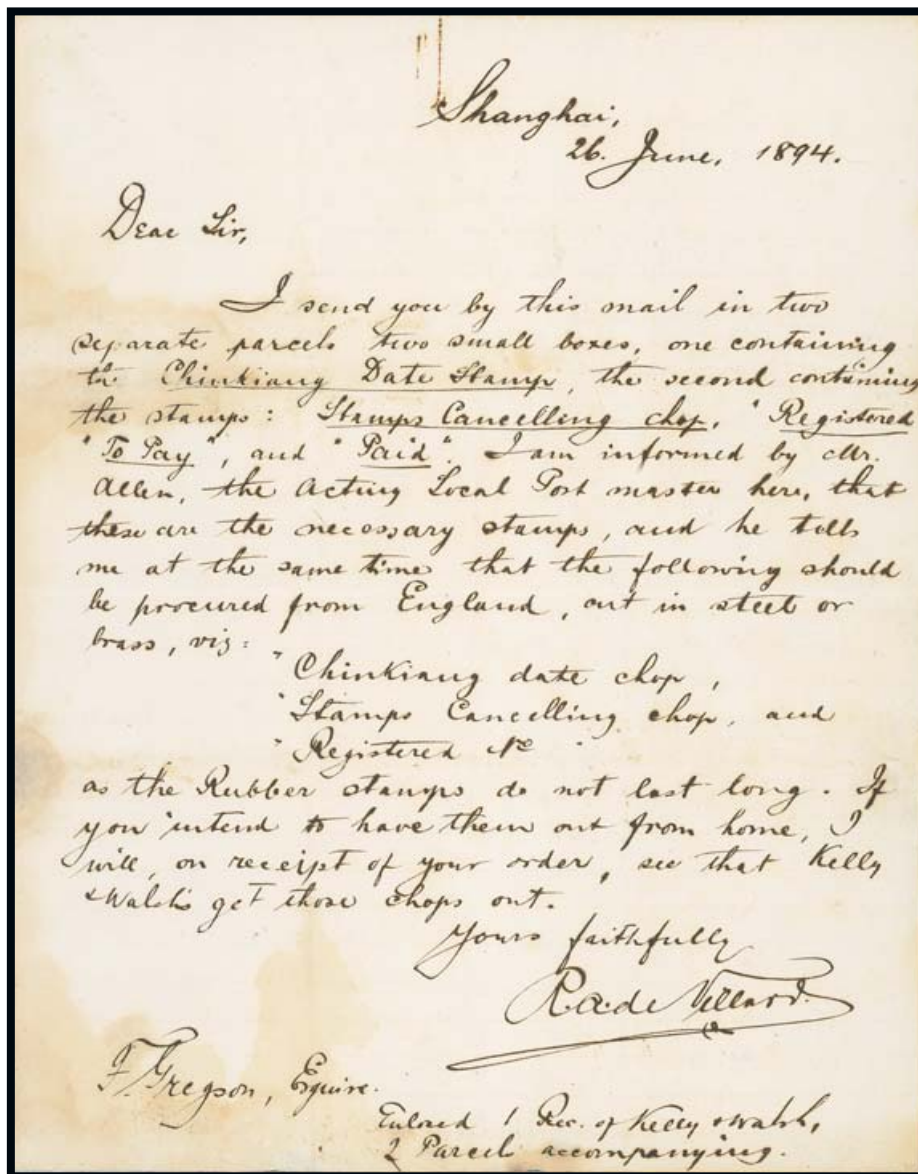 Shanghai,
26. June, 1894.
Dear Sir,
I send you by this mail in two
separate parcels two small boxes, one containing
the Chinkiang Date Stamp, the second containing
the stamps: Stamps Cancelling chop, "Registered
"To Pay", and "Paid". I am informed by Mr.
Allen, the Acting Local Post master here, that
these are the necessary stamps, and he tells
me at the same time that the following should
be procured from England, cut in steel or
brass, viz:
"Chinkiang date chop,
"Stamps Cancelling chop, and
"Registered No "
as the Rubber stamps do not last long. If
you intend to have them out from home, I
will, on receipt of your order, see that Kelly
& Walsh get those chops out.
Yours faithfully
R.A. de Villard.
F. Gregson, Esquire.
1 Rec. of Kelly & Walsh,
2 Parcel accompanying.